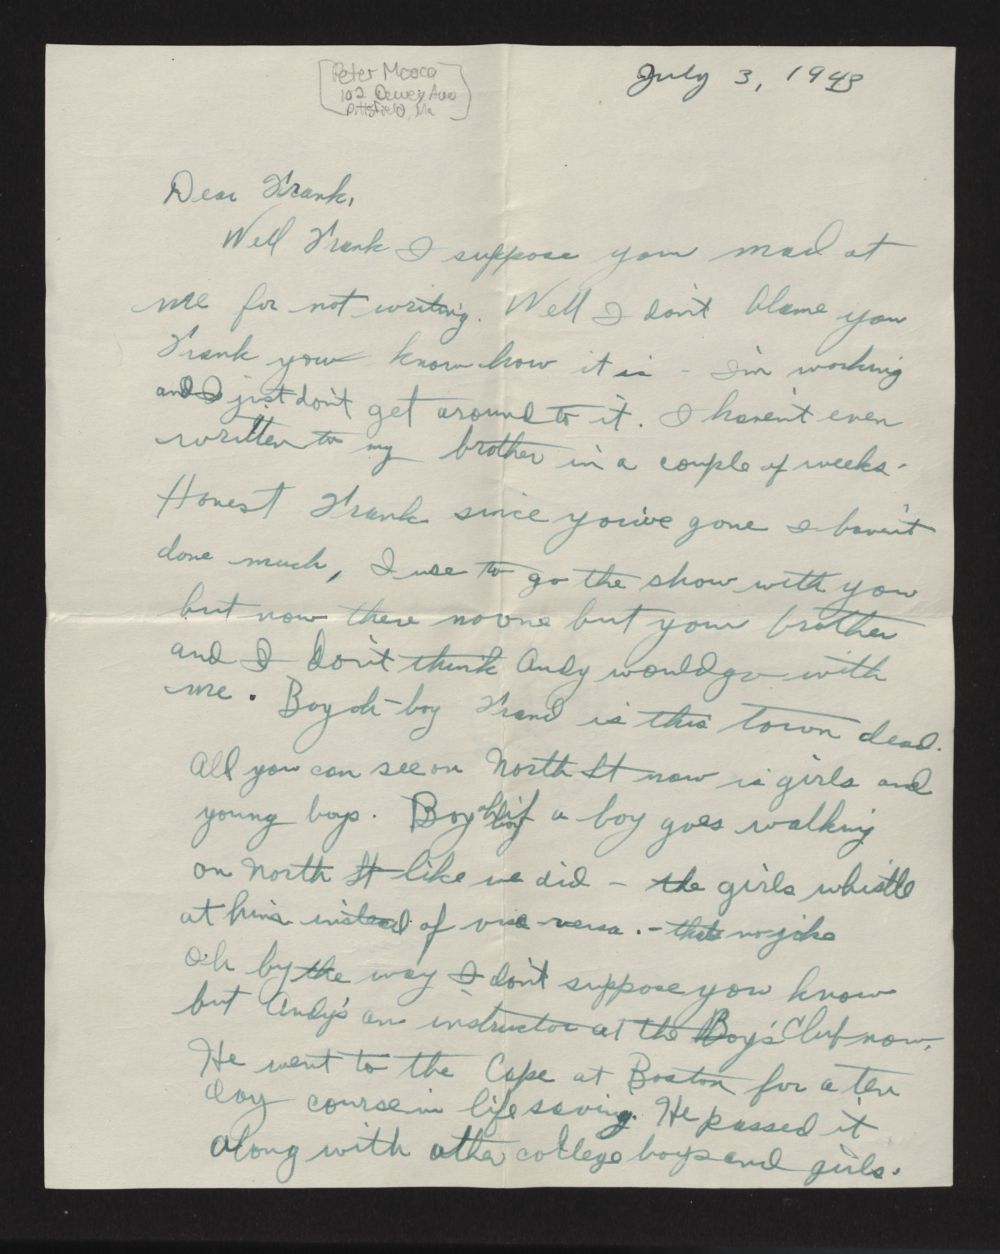 Peter Mcoco
102 Dewey Ave
Pittsfield, Ma
July 3, 1943
Dear Frank,
Well Frank I suppose your mad at
me for not writing. Well I don't blame you
Frank you know how it is - I'm working
and I just don't get around to it. I haven't even
written to my brother in a couple of weeks.
Honest Frank since you've gone I haven't
done much, I use to go the show with you
but now there no one but your brother
and I don't think Andy would go with
me. Boy oh-boy Frank is this town dead.
All you can see on North St now is girls and
young boys. Boy oh boy if a boy goes walking
on North St like we did - the girls whistle
at him instead of vise-versa. - thats no joke
Oh by the way I don't suppose you know
but Andy's an instructor at the Boy's Club now.
He went to the Cape at Boston for a ten
day course in life saving. He passed it
along with other college boys and girls.